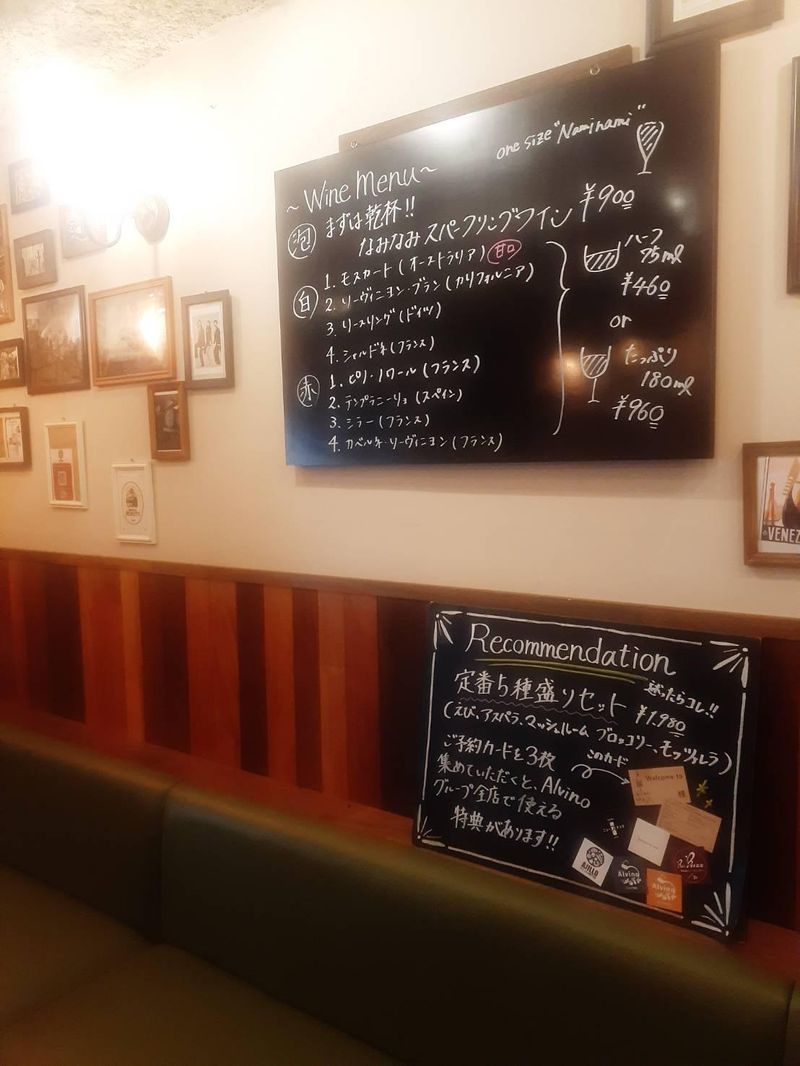 ~Wine Menu~
one size "Naminami"
泡 まずは乾杯!!
なみなみスパークリングワイン ¥900
白 1. モスカート(オーストラリア) 甘口
2. ソーヴィニヨン・ブラン(カリフォルニア)
3. リースリング(ドイツ)
4. シャルドネ(フランス)
赤 1. ピノ・ノワール(フランス)
2. テンプラニーリョ(スペイン)
3. シラー(フランス)
4. カベルネ・ソーヴィニヨン(フランス)
ハーフ
75ml
¥460
or
たっぷり
180ml
¥960
VENEZ
Recommendation
迷ったらコレ!!
定番5種盛りセット ¥1,980
(えび、アスパラ、マッシュルーム ブロッコリー、モッツァレラ)
ご予約カードを3枚
このカード
集めていただくと、Alvino
グループ全店で使える
特典があります!!
Welcome to
様
Alvino